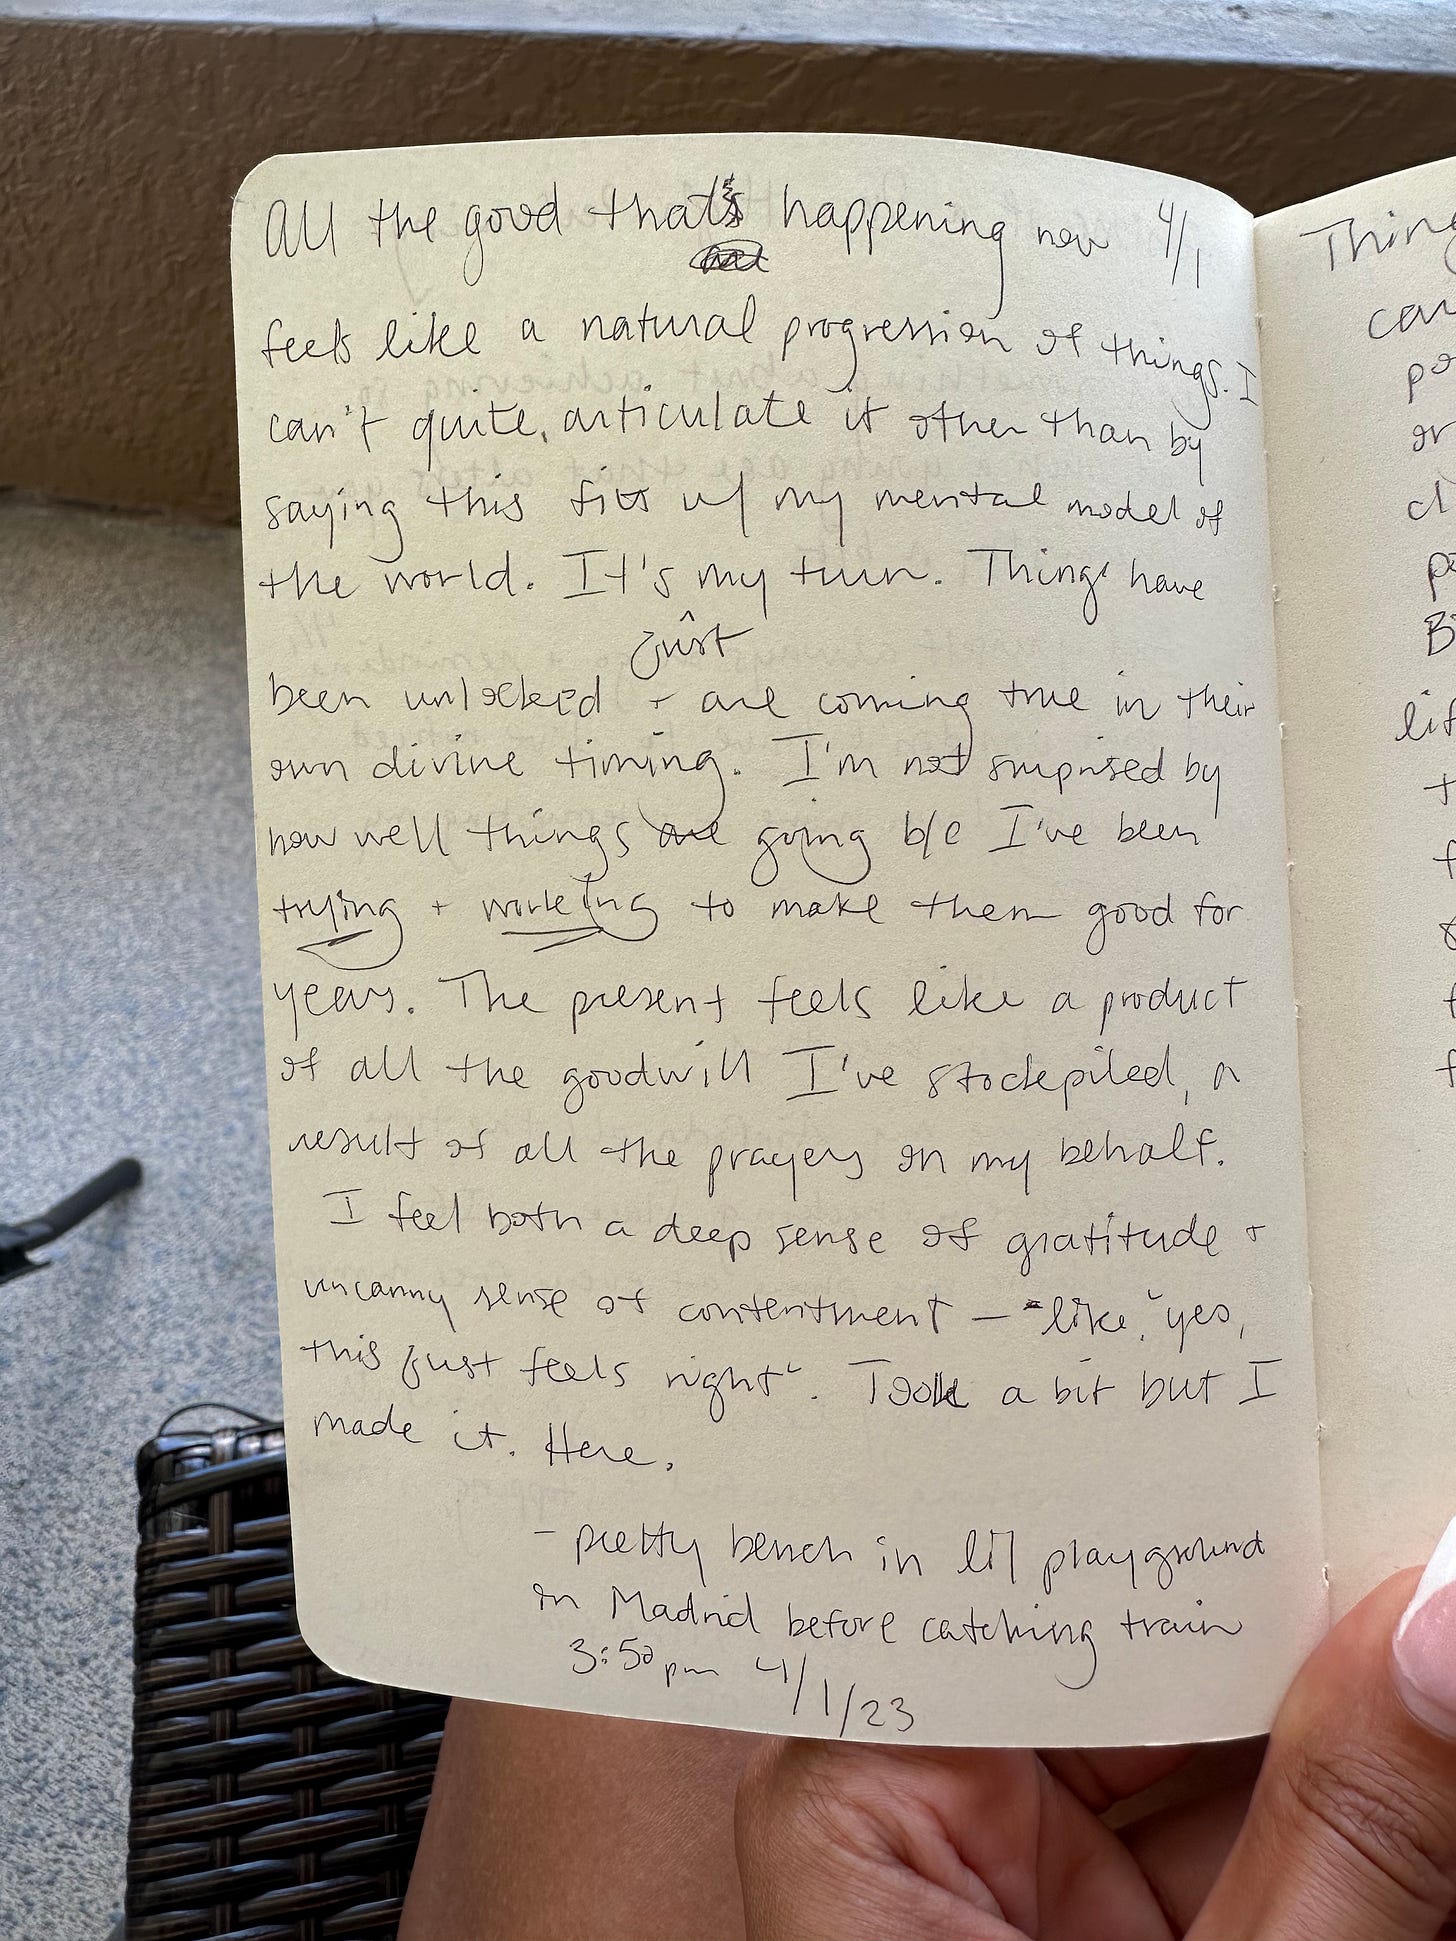 All the good that's happening now 4/1
feels like a natural progression of things. I
can't quite articulate it other than by
saying this fits w/ my mental model of
the world. It's my turn. Things have
just
been unlocked + are coming true in their
own divine timing. I'm not surprised by
how well things are going b/c I've been
trying + working to make them good for
years. The present feels like a product
of all the goodwill I've stockpiled, a
result of all the prayers on my behalf.
I feel both a deep sense of gratitude +
uncanny sense of contentment — like "yes,
this just feels right". Took a bit but I
made it. Here.
- pretty bench in lil playground
in Madrid before catching train
3:50 pm 4/1/23
Thing